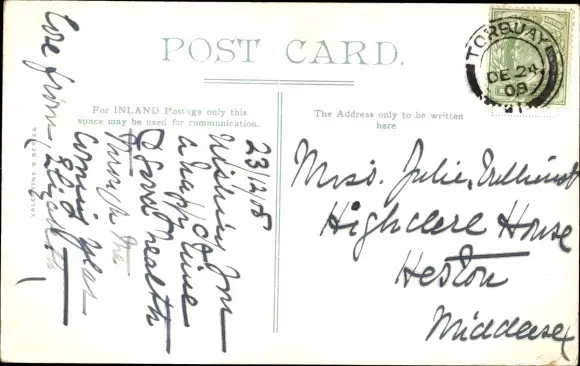 POST CARD.
TORBUAY
DE 24
08
For INLAND Postage only this
space may be used for communication.
The Address only to be written
here
VALENTINE'S SERIES
23/12/08
Wishing you
a happy Xmas time
& good health
through the
coming year
Love from
Miss. Julie
Highclere House
Heston
Middlesex